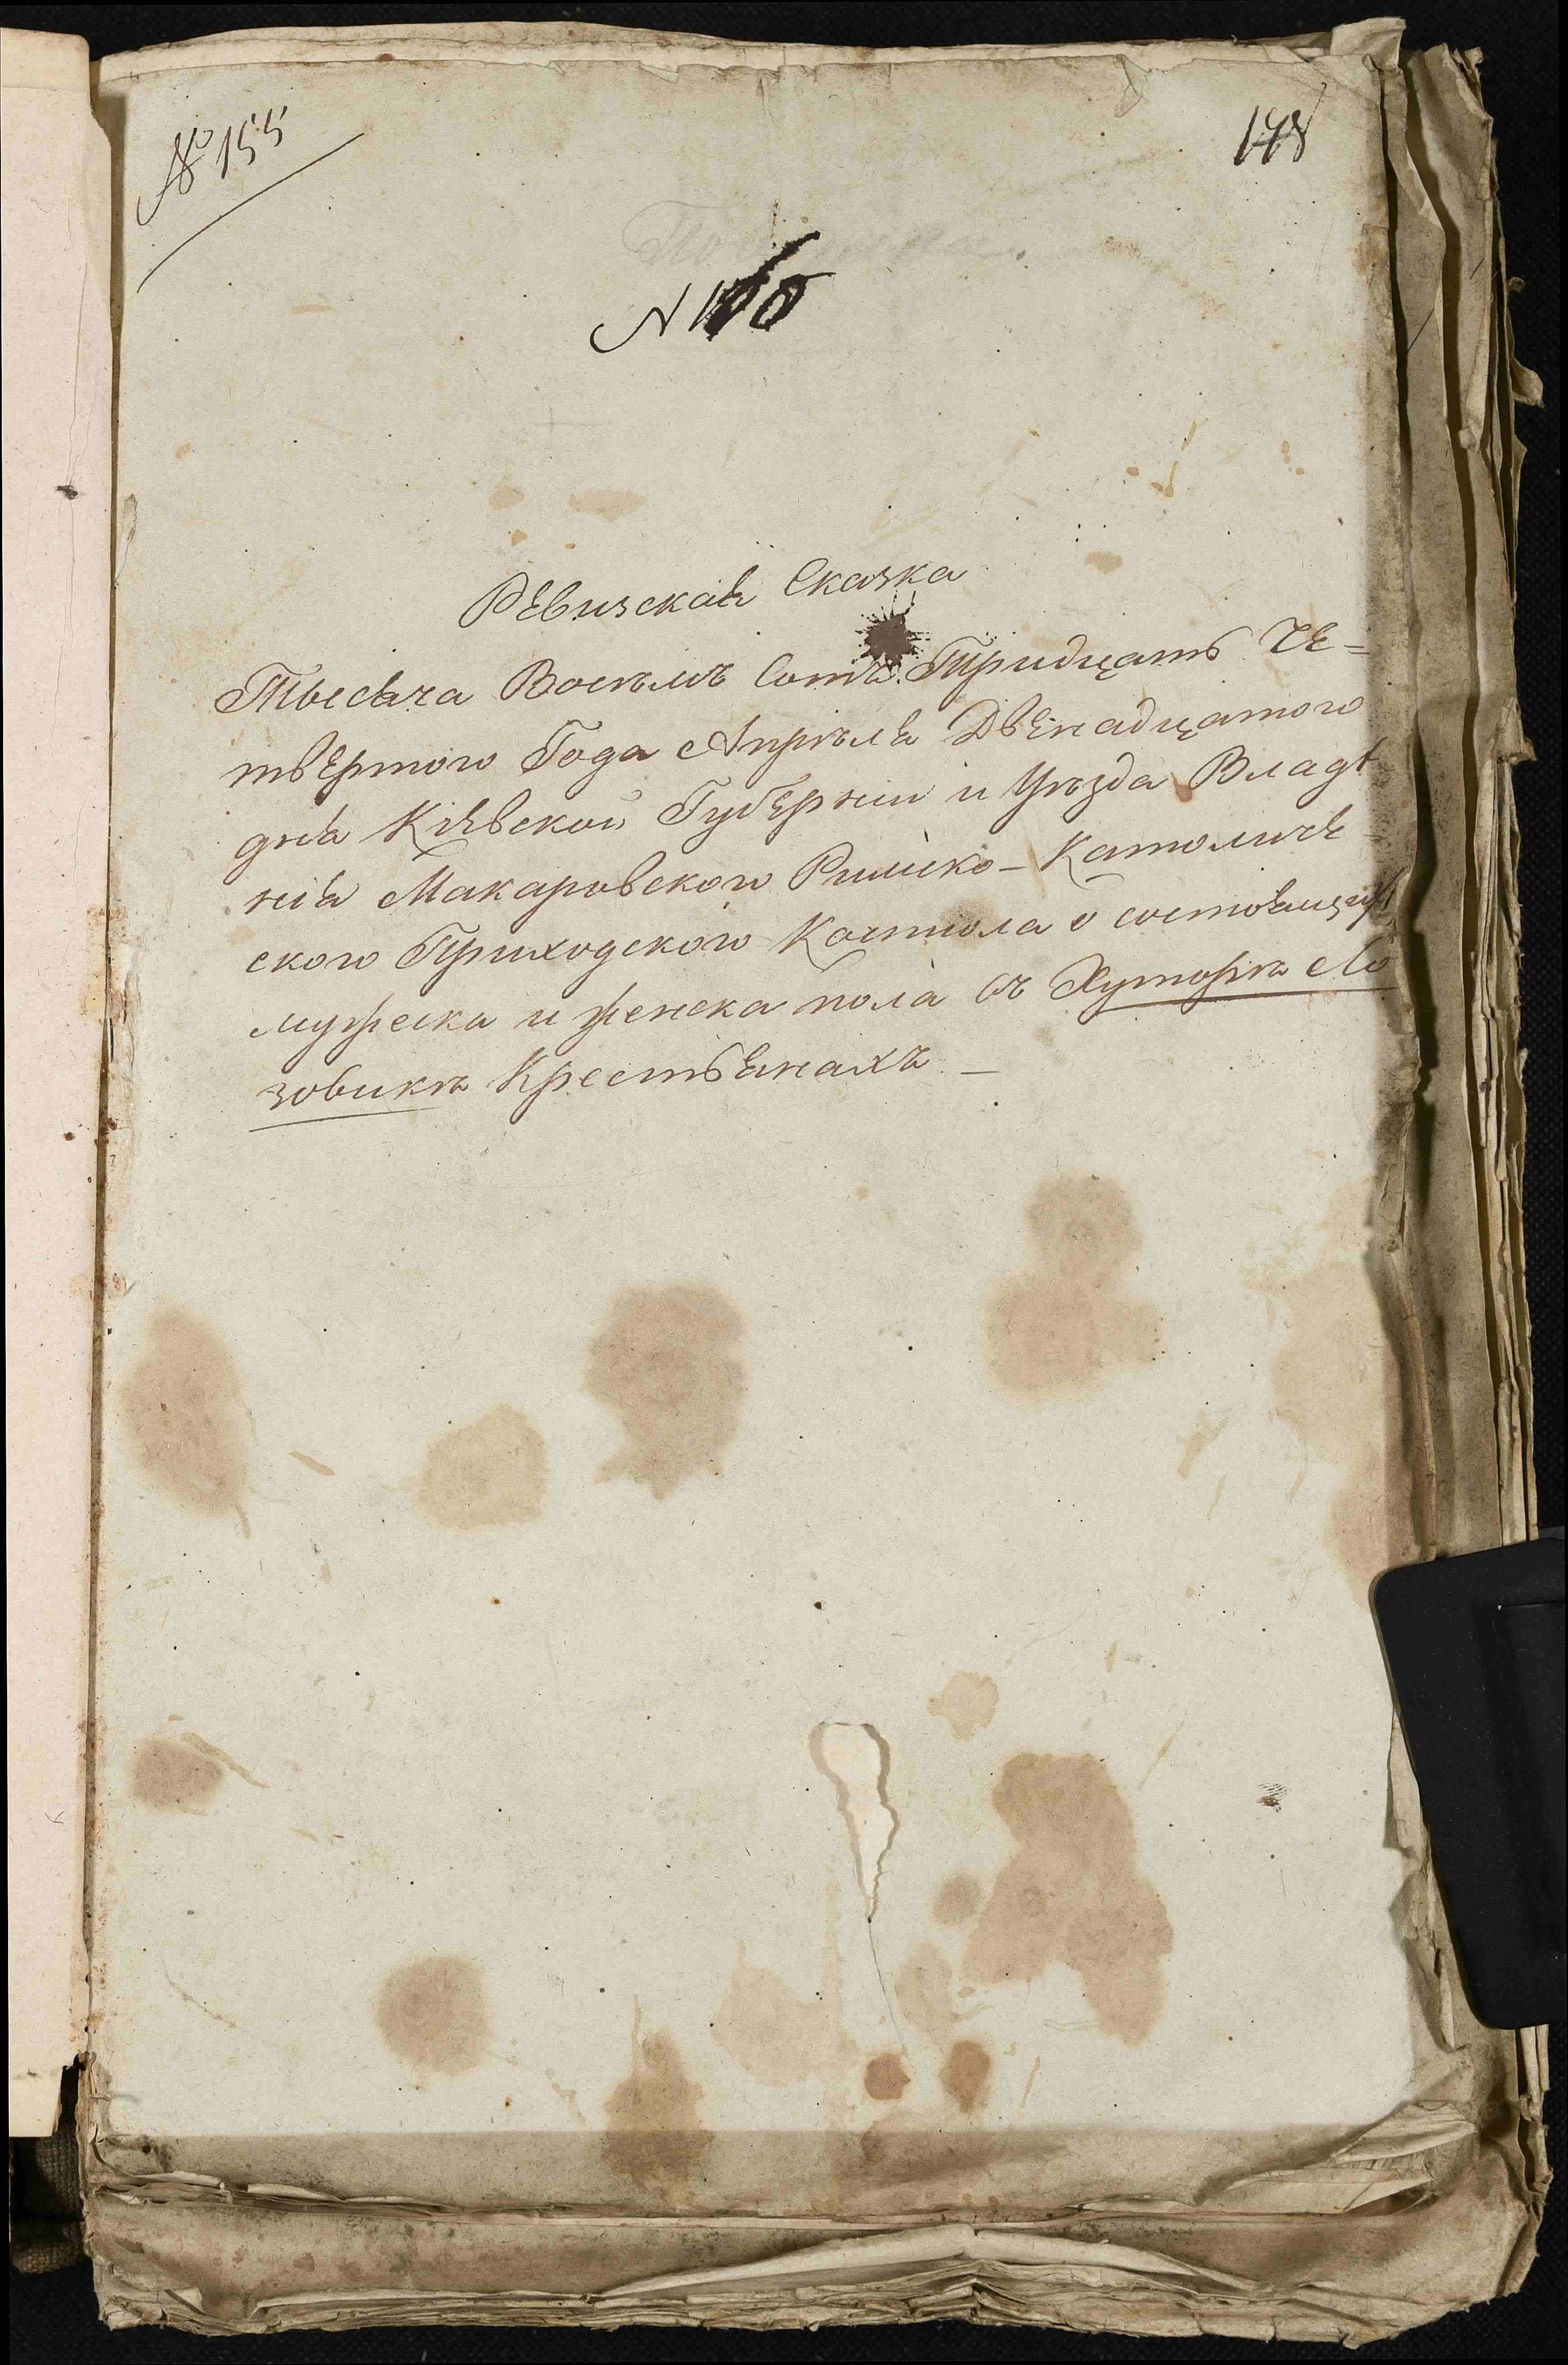 № 155
148
Ревизская Сказка
Тысяча Восѣмъ Сотъ Тридцать че=
твертого Года Апрѣля Двенадцатого
дня Кіевской Губерніи и Уѣзда Владѣ
нія Макаровского Римско-Католиче-
ского Приходского Костіола о состоящихъ
мужеска и женска пола въ Хуторѣ Ло
зовикѣ Крестьянахъ —